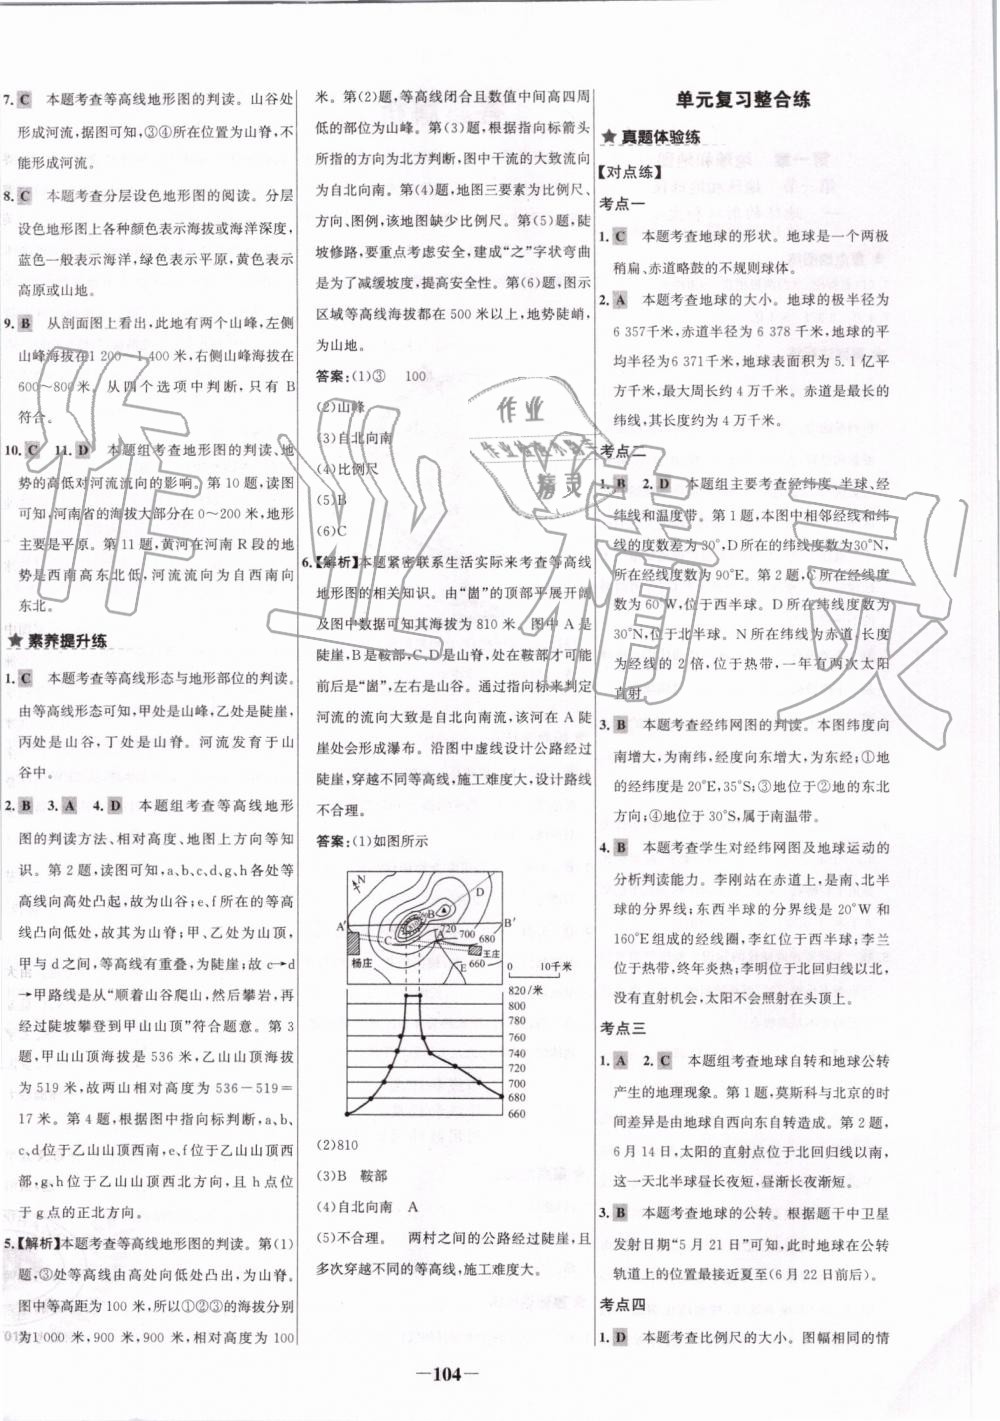 7. C　本题考查等高线地形图的判读。山谷处
形成河流,据图可知,③④所在位置为山脊,不
能形成河流。
8. C　本题考查分层设色地形图的阅读。分层
设色地形图上各种颜色表示海拔或海洋深度,
蓝色一般表示海洋,绿色表示平原,黄色表示
高原或山地。
9. B　从剖面图上看出,此地有两个山峰,左侧
山峰海拔在1 200～1 400 米,右侧山峰海拔在
600～800 米。从四个选项中判断,只有 B
符合。
10. C　11. D　本题组考查地形图的判读、地
势的高低对河流流向的影响。第 10 题,读图
可知,河南省的海拔大部分在 0～200 米,地形
主要是平原。第 11 题,黄河在河南 R 段的地
势是西南高东北低,河流流向为自西南向
东北。
★ 素养提升练
1. C　本题考查等高线形态与地形部位的判读。
由等高线形态可知,甲处是山峰,乙处是陡崖,
丙处是山谷,丁处是山脊。河流发育于山
谷中。
2. B　3. A　4. D　本题组考查等高线地形
图的判读方法、相对高度、地图上方向等知
识。第 2 题,读图可知,a、b、c、d、g、h 各处等
高线向高处凸起,故为山谷;e、f 所在的等高
线凸向低处,故其为山脊;甲、乙之间,d、乙之间,
甲与 d 之间,等高线有重叠,为陡崖;故 c→d
→甲路线是从“顺着山谷爬山,然后攀岩,再
经过陡坡攀登到甲山山顶”符合题意。第 3
题,甲山山顶海拔是 536 米,乙山山顶海拔
为 519 米,故两山相对高度为 536－519＝
17 米。第 4 题,根据图中指向标判断,a、b、
c、d 位于乙山山顶西南,e、f 位于乙山山顶西
部,g、h 位于乙山山顶西北方向,且 h 点位
于 g 点的正北方向。
5.【解析】本题考查等高线地形图的判读。第(1)
题,③处等高线由高处向低处凸出,为山脊。
图中等高距为 100 米,所以①②③的海拔分别
为1 000 米,900 米,900 米,相对高度为 100
米。第(2)题,等高线闭合且数值中间高四周
低的部位为山峰。第(3)题,根据指向标箭头
所指的方向为北方判断,图中干流的大致流向
为自北向南。第(4)题,地图三要素为比例尺、
方向、图例,该地图缺少比例尺。第(5)题,陡
坡修路,要重点考虑安全,建成“之”字状弯曲
是为了减缓坡度,提高安全性。第(6)题,图示
区域等高线海拔都在 500 米以上,地势陡峭,
为山地。
答案:(1)③　100
(2)山峰
(3)自北向南
(4)比例尺
(5)B
(6)C
6.【解析】本题紧密联系生活实际来考查等高线
地形图的相关知识。由“崮”的顶部平展开阔
及图中数据可知其海拔为 810 米。图中 A 是
陡崖,B 是鞍部,C、D 是山脊,站在陡崖才可能
前后是“崮”,左右是山谷。通过指向标来判定
河流的流向大致是自北向南流,该河在 A 陡
崖处会形成瀑布。沿图中虚线设计公路经过
陡崖,穿越不同等高线,施工难度大,设计路线
不合理。
答案:(1)如图所示
N
D
B
A′ B′
C
720
700
680
A
杨庄
王庄
E
660
0　10千米
820/米
800
780
760
740
720
700
680
660
(2)810
(3)B　鞍部
(4)自北向南　A
(5)不合理。　两村之间的公路经过陡崖,且
多次穿越不同的等高线,施工难度大。
单元复习整合练
★ 真题体验练
【对点练】
考点一
1. C　本题考查地球的形状。地球是一个两极
稍扁、赤道略鼓的不规则球体。
2. A　本题考查地球的大小。地球的极半径为
6 357千米,赤道半径为 6 378 千米,地球的平
均半径为 6 371千米,地球表面积为 5.1 亿平
方千米,最大周长约 4 万千米。赤道是最长的
纬线,其长度约为 4 万千米。
考点二
1. B　2. D　本题组主要考查经纬度、半球、经
纬线和温度带。第 1 题,本图中相邻经线和纬
线的度数差为30°,D所在的纬线度数为30°N,
所在经线度数为 90°E。第 2 题,C所在经线度
数为 60°W,位于西半球。D 所在纬线度数为
30°N,位于北温带。N 所在纬线为赤道,长度
为经线的 2 倍,位于热带,一年有两次太阳
直射。
3. B　本题考查经纬网图的判读。本图纬度向
南增大,为南纬,经度向东增大,为东经;①地
的经纬度是 20°E,55°S;③地位于②地的东北
方向;④地位于 30°S,属于南温带。
4. B　本题考查学生对经纬网图及地球运动的
分析判读能力。李刚站在赤道上,是南、北半
球的分界线;东西半球的分界线是 20°W 和
160°E组成的经线圈,李红位于西半球;李兰
位于热带,终年炎热;李明位于北回归线以北,
没有直射机会,太阳不会照射在头顶上。
考点三
1. A　2. C　本题组考查地球自转和地球公转
产生的地理现象。第 1 题,莫斯科与北京的时
间差异是由地球自西向东自转造成。第 2 题,
6 月 14 日,太阳的直射点位于北回归线以南,
这一天北半球昼长夜短,昼渐长夜渐短。
3. B　本题考查地球的公转。根据题干中卫星
发射日期“5 月 21 日”可知,此时地球在公转
轨道上的位置最接近夏至(6 月 22日前后)。
考点四
1. D　本题考查比例尺的大小。图幅相同的情
—104—
作业精灵
作业
作业检查小助手
精灵